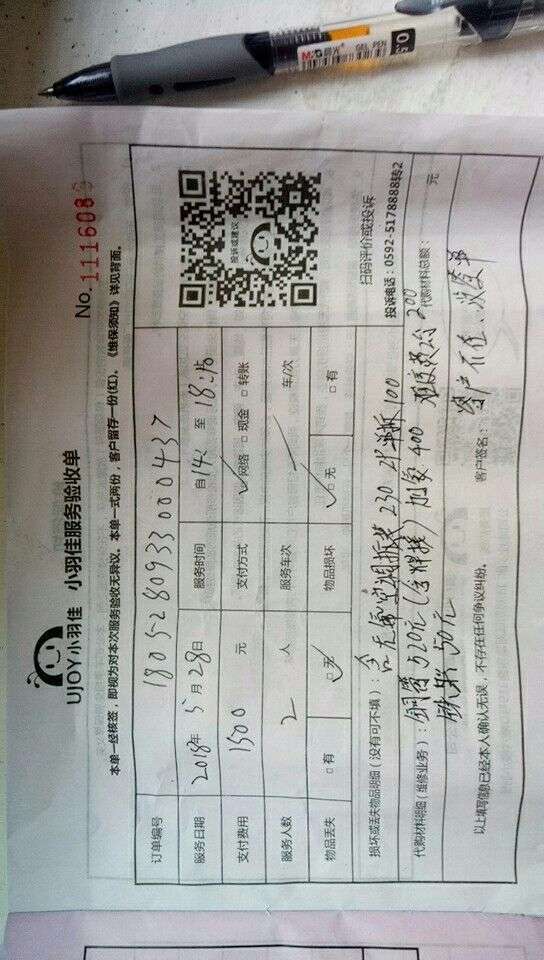 UJOY小羽佳 小羽佳服务验收单
No. 1116083
本单一经核签，即视为对本次服务验收无异议。本单一式两份，客户留存一份(红)、《维保须知》详见背面。
订单编号 1805280933000437
服务日期 2018年5月28日 服务时间 自14: 至18:16
支付费用 1500元 支付方式 ✓网络 □现金 □转账
服务人数 2人 服务车次 车/次
物品丢失 □有 ✓无 物品损坏 ✓无 □有
投诉或建议
扫码评价或投诉
投诉电话：0592-5178888转2
损坏或丢失物品明细（没有可不填）：含 空调拆装 230 单拆 100
代购材料明细（维修业务）：铜管520元（含焊接）加氟400 200 代购材料总额： 元
铁架50元
以上填写信息已经本人确认无误，不存在任何争议纠纷。 客户签名： 客户不在
M&G 晨光
0.5